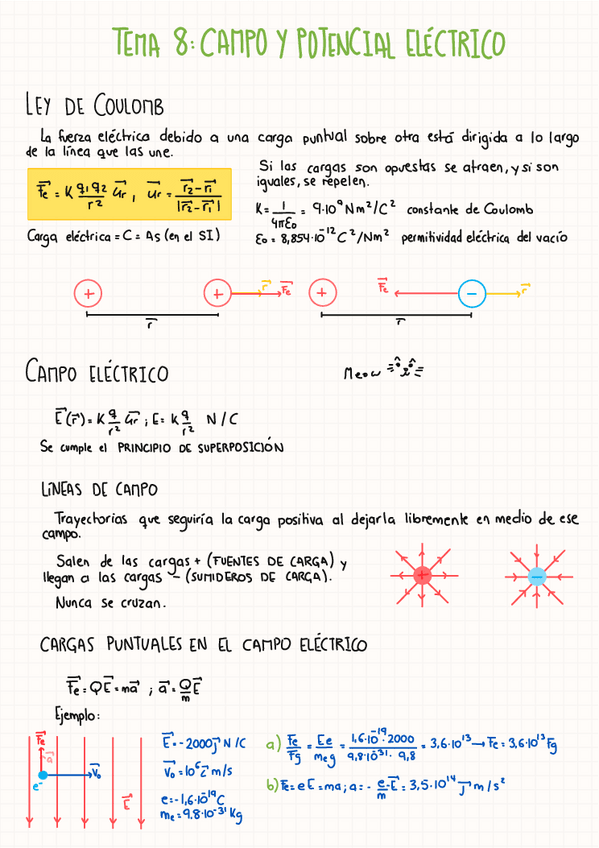 TEMA 8: CAMPO Y POTENCIAL ELÉCTRICO
LEY DE COULOMB
La fuerza eléctrica debido a una carga puntual sobre otra está dirigida a lo largo
de la línea que las une.
F⃗e = K q₁q₂/r² u⃗r, u⃗r = (r⃗₂ - r⃗₁)/|r⃗₂ - r⃗₁|
Carga eléctrica = C = As (en el SI)
Si las cargas son opuestas se atraen, y si son
iguales, se repelen.
K = 1/4πε₀ = 9·10⁹ Nm²/C² constante de Coulomb
ε₀ = 8,854·10⁻¹² C²/Nm² permitividad eléctrica del vacío
+ + r⃗ F⃗e + F⃗e − r⃗
r⃗ r⃗
CAMPO ELÉCTRICO
Meow
E⃗(r⃗) = K q/r² u⃗r ; E = K q/r² N/C
Se cumple el PRINCIPIO DE SUPERPOSICIÓN
LÍNEAS DE CAMPO
Trayectorias que seguiría la carga positiva al dejarla libremente en medio de ese
campo.
Salen de las cargas + (FUENTES DE CARGA) y
llegan a las cargas − (SUMIDEROS DE CARGA).
Nunca se cruzan.
+ −
CARGAS PUNTUALES EN EL CAMPO ELÉCTRICO
F⃗e = QE⃗ = ma⃗ ; a⃗ = Q/m E⃗
Ejemplo:
F⃗e
e⁻ V⃗₀
E⃗
E⃗ = -2000 j⃗ N/C
V⃗₀ = 10⁶ i⃗ m/s
e = -1,6·10⁻¹⁹ C
me = 9.8·10⁻³¹ Kg
a) Fe/Fg = Ee/meg = 1,6·10⁻¹⁹·2000/9,8·10⁻³¹·9,8 = 3,6·10¹³ → Fe = 3,6·10¹³ Fg
b) F⃗e = eE = ma; a = - e/m E⃗ = 3,5·10¹⁴ j⃗ m/s²